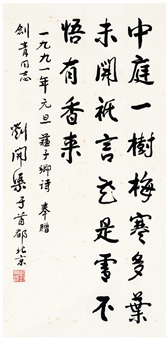 中庭一樹梅寒多葉
未開祇言花是雪不
悟有香来
一九九一年元旦蘇子卿诗奉贈
劍青同志 劉開渠于首都北京